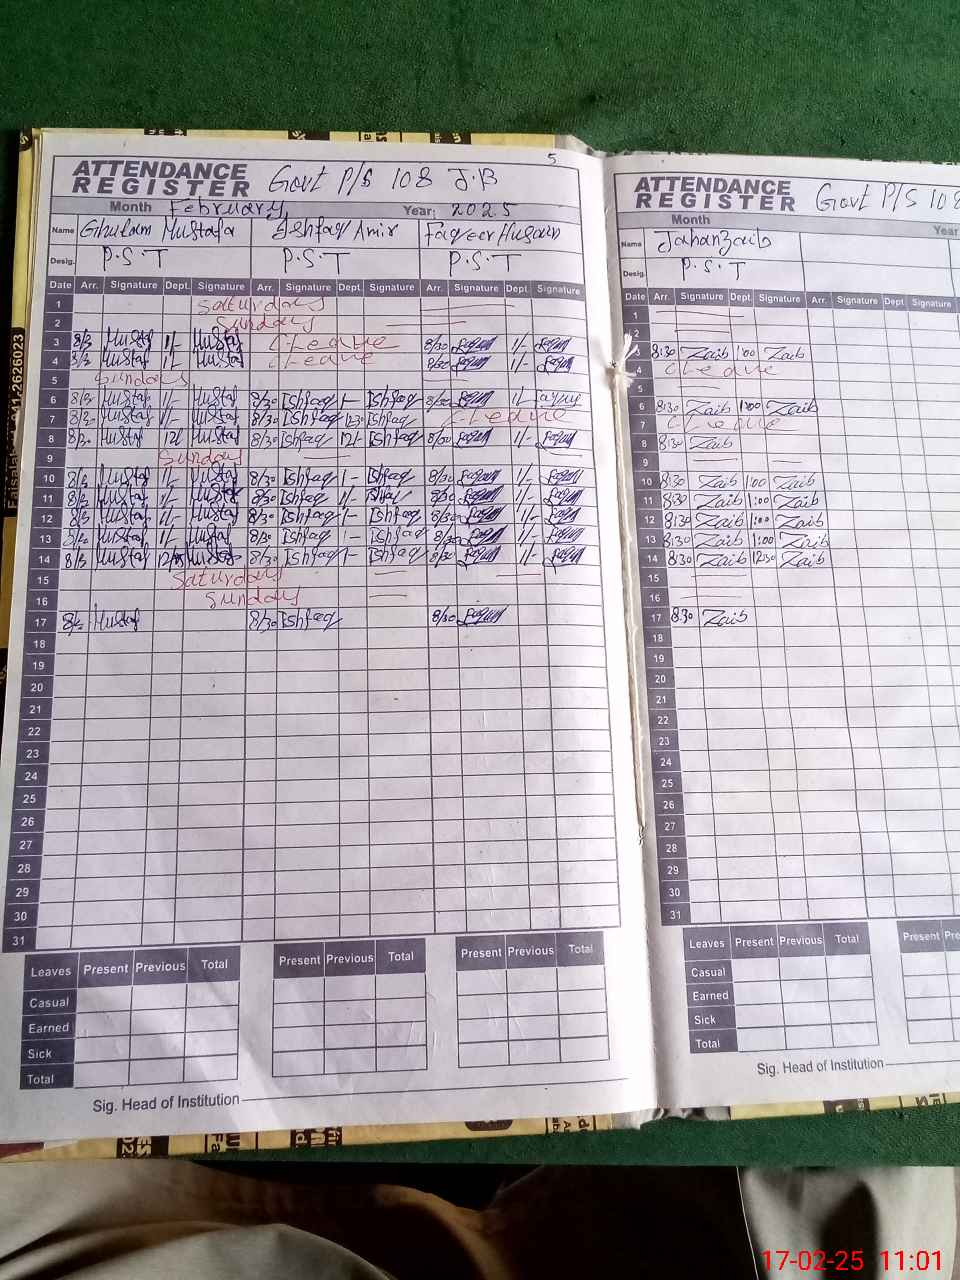 5
ATTENDANCE REGISTER Govt P/S 108 J.B
Month February Year: 2025
Name Ghulam Mustafa Ishfaq Amir Faqeer Husain
Desig. P.S.T P.S.T P.S.T
Date Arr. Signature Dept. Signature Arr. Signature Dept. Signature Arr. Signature Dept. Signature
1 Saturdays
2 Sundays
3 Mustaf 1/- Mustaf C Leave 8/30 1/-
4 Mustaf 1/- Mustaf C Leave 8/30 1/-
5 Sundays
6 Mustaf 1/- Mustaf 8/30 Ishfaq 1- Ishfaq 8/30 1/-
7 Mustaf 1/- Mustaf 8/30 Ishfaq 12/30 Ishfaq C Leave
8 8/30 Mustaf 12/- Mustaf 8/30 Ishfaq 12/- Ishfaq 8/30 1/-
9 Sundays
10 Mustaf 1/- Mustaf 8/30 Ishfaq 1- Ishfaq 8/30 1/-
11 Mustaf 1/- Mustaf 8/30 Ishfaq 1/- 8/30 1/-
12 Mustaf 1/- Mustaf 8/30 Ishfaq 1- Ishfaq 8/30 1/-
13 Mustaf 1/- Mustaf 8/30 Ishfaq 1- Ishfaq 8/30 1/-
14 Mustaf Mustaf 8/30 Ishfaq 1- Ishfaq 8/30 1/-
15 Saturdays
16 Sundays
17 Mustaf 8/30 Ishfaq 8/30
18
19
20
21
22
23
24
25
26
27
28
29
30
31
Leaves Present Previous Total Present Previous Total Present Previous Total
Casual
Earned
Sick
Total
Sig. Head of Institution
ATTENDANCE REGISTER Govt P/S 108
Month Year
Name Jahanzaib
Desig. P.S.T
Date Arr. Signature Dept. Signature Arr. Signature Dept. Signature Arr.
1
2
3 8:30 Zaib 1:00 Zaib
4 C Leave
5
6 8:30 Zaib 1:00 Zaib
7 C Leave
8 8:30 Zaib
9
10 8:30 Zaib 1:00 Zaib
11 8:30 Zaib 1:00 Zaib
12 8:30 Zaib 1:00 Zaib
13 8:30 Zaib 1:00 Zaib
14 8:30 Zaib 12:30 Zaib
15
16
17 8:30 Zaib
18
19
20
21
22
23
24
25
26
27
28
29
30
31
Leaves Present Previous Total Present
Casual
Earned
Sick
Total
Sig. Head of Institution
17-02-25 11:01